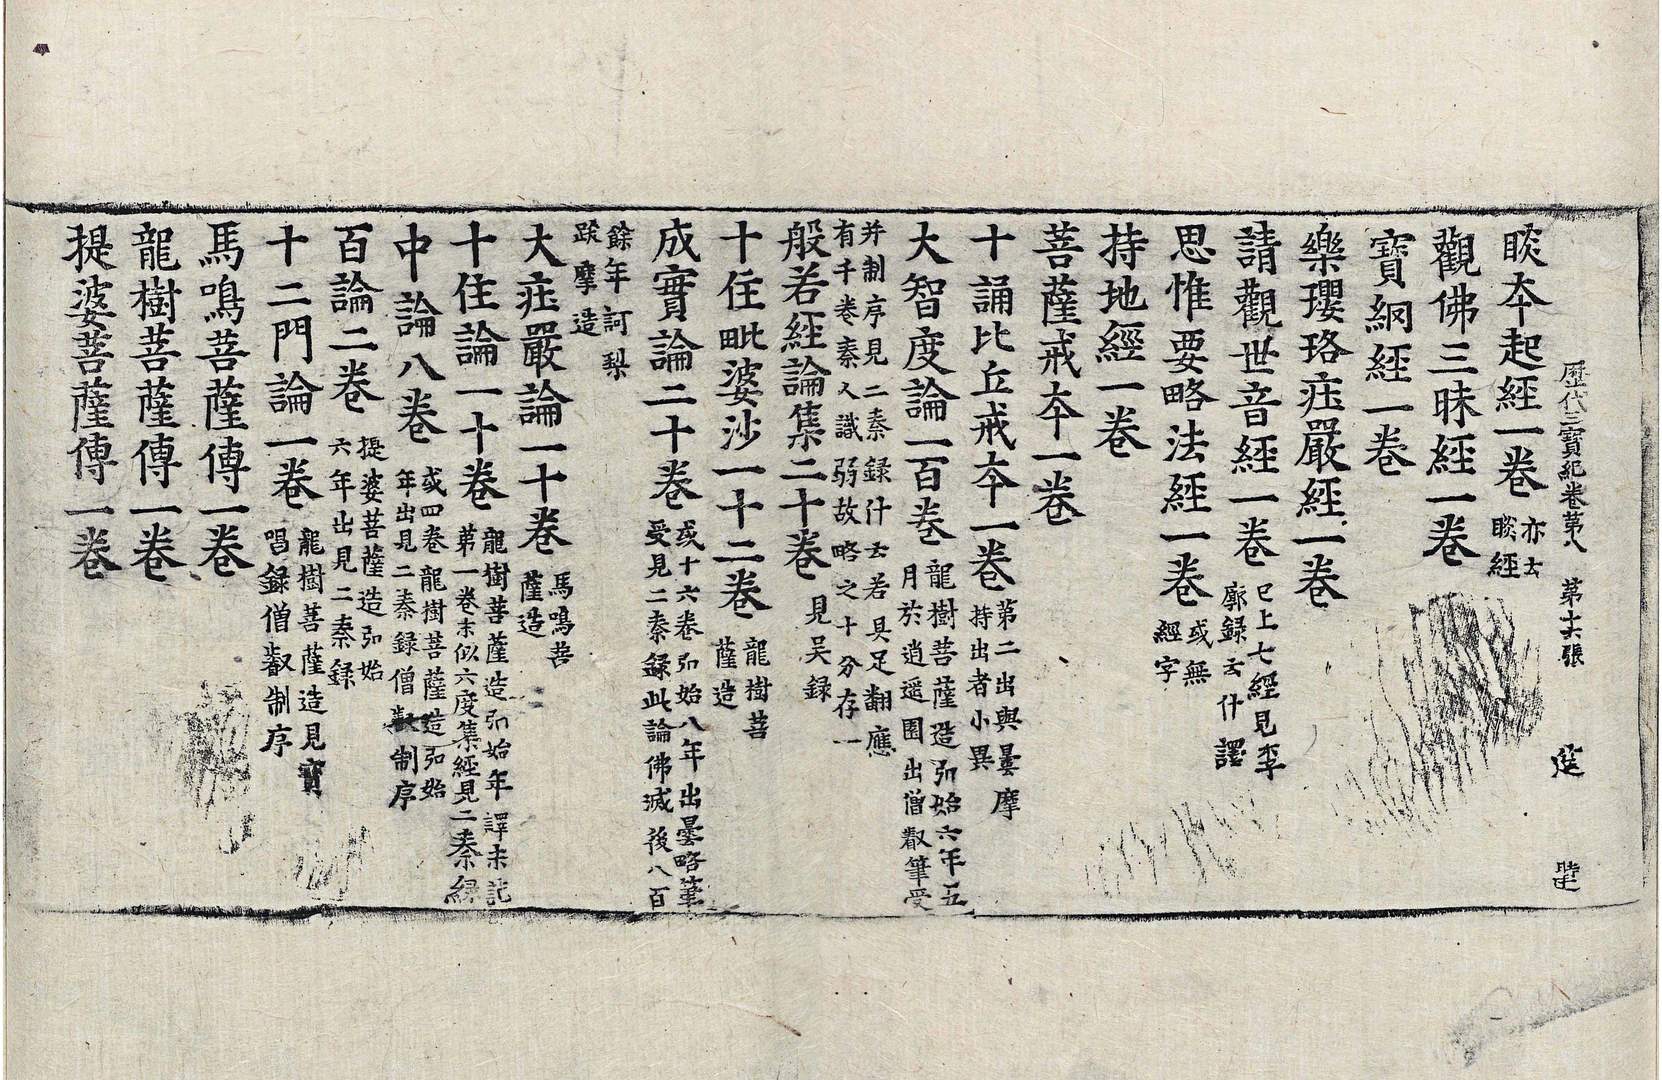 歷代三寶紀卷第八 第十六張
睒夲起經一卷 亦云睒經
觀佛三昧經一卷
寶網經一卷
樂瓔珞莊嚴經一卷
請觀世音經一卷 已上七經見李廓録云什譯
思惟要略法經一卷 或無經字
持地經一卷
菩薩戒夲一卷
十誦比丘戒夲一卷 第二出與曇摩持出者小異
大智度論一百卷 龍樹菩薩造弘始六年五月於逍遥園出僧叡筆受
并制序見二秦録什云若具足翻應有千卷秦人識弱故略之十分存一
般若經論集二十卷 見吴録
十住毗婆沙一十二卷 龍樹菩薩造
成實論二十卷 或十六卷弘始八年出曇略筆受見二秦録此論佛滅後八百
餘年訶梨跋摩造
大莊嚴論一十卷 馬鳴菩薩造
十住論一十卷 龍樹菩薩造弘始年譯未訖第一卷末似六度集經見二秦録
中論八卷 或四卷龍樹菩薩造弘始年出見二秦録僧叡制序
百論二卷 提婆菩薩造弘始六年出見二秦録
十二門論一卷 龍樹菩薩造見寶唱録僧叡制序
馬鳴菩薩傳一卷
龍樹菩薩傳一卷
提婆菩薩傳一卷